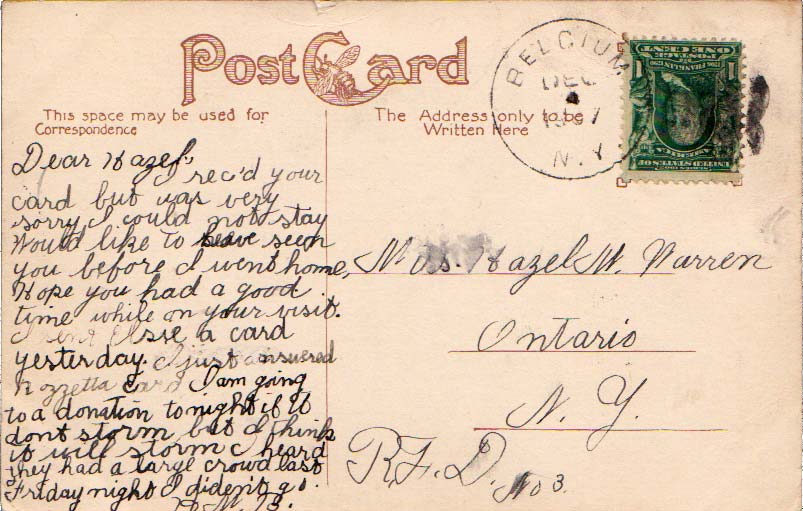 Post Card
This space may be used for
Correspondence
The Address only to be
Written Here
BELGIUM
DEC
4
1907
N.Y.
1 1
ONE CENT
POSTAGE
1706. FRANKLIN 1790
UNITED STATES OF
AMERICA
SERIES 1902
Dear Hazel,
I rec'd your
card but was very
sorry I could not stay
Would like to have seen
you before I went home,
Hope you had a good
time while on your visit.
I sent Elsie a card
yesterday. I just answered
Rozzetta card I am going
to a donation tonight if it
dont storm but I think
it will storm I heard
they had a large crowd last
Friday night I diden't go.
M. B.
Hazel M. Warren
Ontario
N. Y.
R. F. D. No 3.